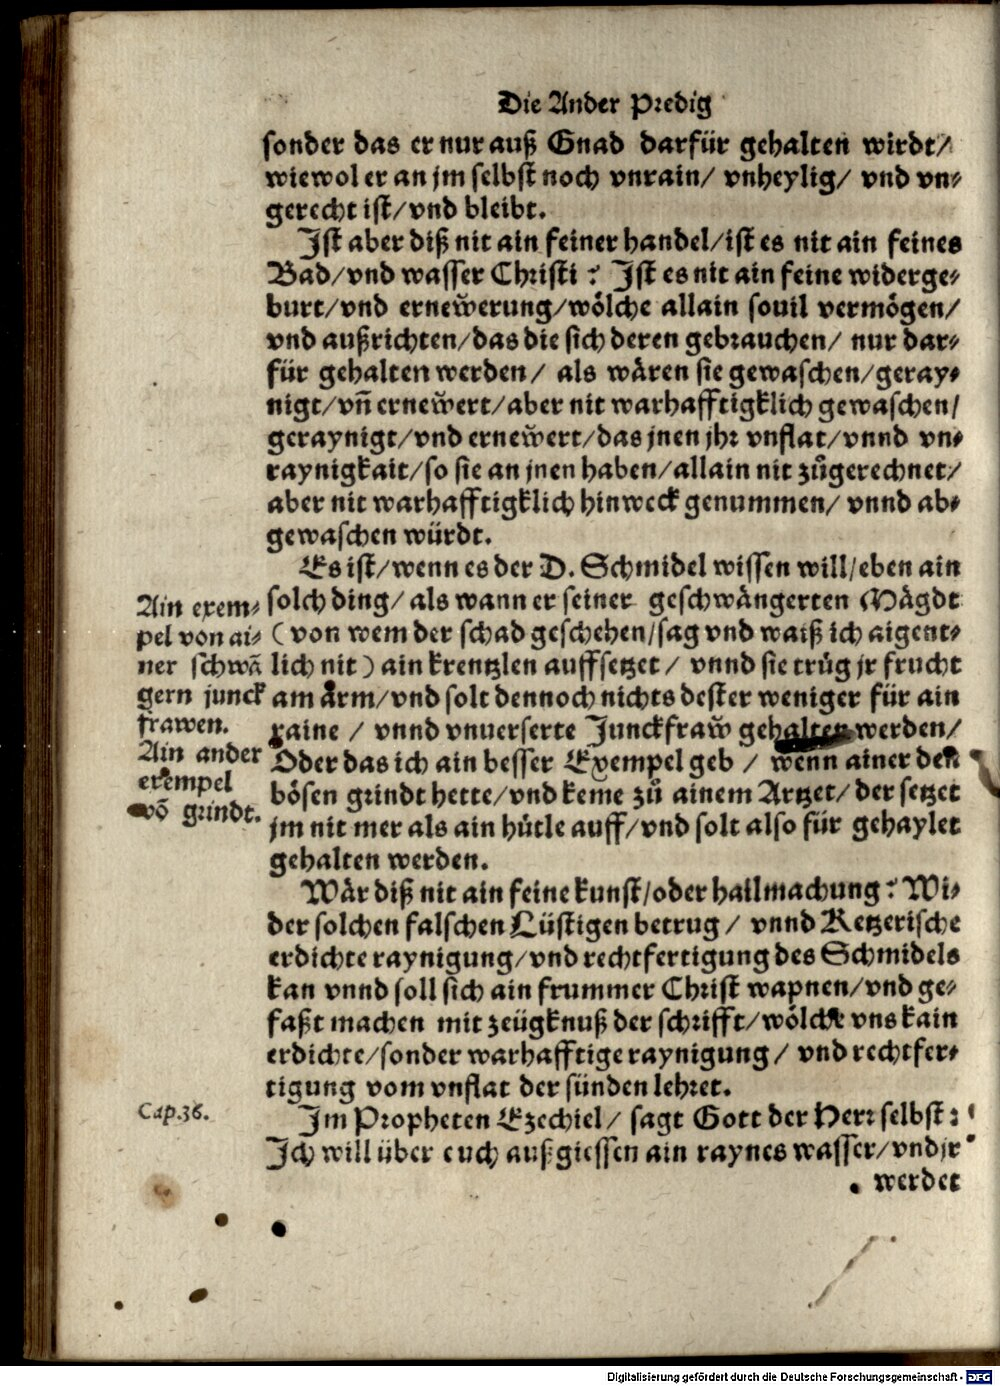 Die Ander Predig
sonder das er nur auß Gnad darfür gehalten wirdt/
wiewol er an jm selbst noch vnrain/ vnheylig/ vnd vn⸗
gerecht ist/ vnd bleibt.
Jst aber diß nit ain feiner handel/ ist es nit ain feines
Bad/ vnd wasser Christi? Jst es nit ain feine widerge⸗
burt/ vnd ernew̆erung/ wölche allain souil vermögen/
vnd außrichten/ das die sich deren gebrauchen/ nur dar⸗
für gehalten werden/ als wären sie gewaschen/ geray⸗
nigt/ vñ ernew̆ert/ aber nit warhafftigklich gewaschen/
geraynigt/ vnd ernew̆ert/ das jnen jhr vnflat/ vnnd vn⸗
raynigkait/ so sie an jnen haben/ allain nit zůgerechnet/
aber nit warhafftigklich hinweck genummen/ vnnd ab⸗
gewaschen würdt.
Es ist/ wenn es der D. Schmidel wissen will/ eben ain
solch ding/ als wann er seiner geschwängerten Mägdt
(von wem der schad geschehen/ sag vnd waiß ich aigent⸗
lich nit) ain krentzlen auffsetzet/ vnnd sie trůg jr frucht
am arm/ vnd solt dennoch nichts dester weniger für ain
raine/ vnnd vnuerserte Junckfraw̆ gehalten werden/
Oder das ich ain besser Exempel geb/ wenn ainer den
bösen grindt hette/ vnd keme zů ainem Artzet/ der setzet
jm nit mer als ain hütle auff/ vnd solt also für gehaylet
gehalten werden.
Ain exem⸗
pel von ai⸗
ner schwã
gern junck
frawen.
Ain ander
exempel
võ grindt.
Wär diß nit ain feine kunst/ oder hailmachung? Wi⸗
der solchen falschen Lüstigen betrug/ vnnd Ketzerische
erdichte raynigung/ vnd rechtfertigung des Schmidels
kan vnnd soll sich ain frummer Christ wapnen/ vnd ge⸗
faßt machen mit zeügknuß der schrifft/ wölche vns kain
erdichte/ sonder warhafftige raynigung/ vnd rechtfer⸗
tigung vom vnflat der sünden lehret.
Cap.36.
Jm Propheten Ezechiel/ sagt Gott der Herr selbst:
Jch will über euch außgiessen ain raynes wasser/ vnd jr
werdet
Digitalisierung gefördert durch die Deutsche Forschungsgemeinschaft - DFG